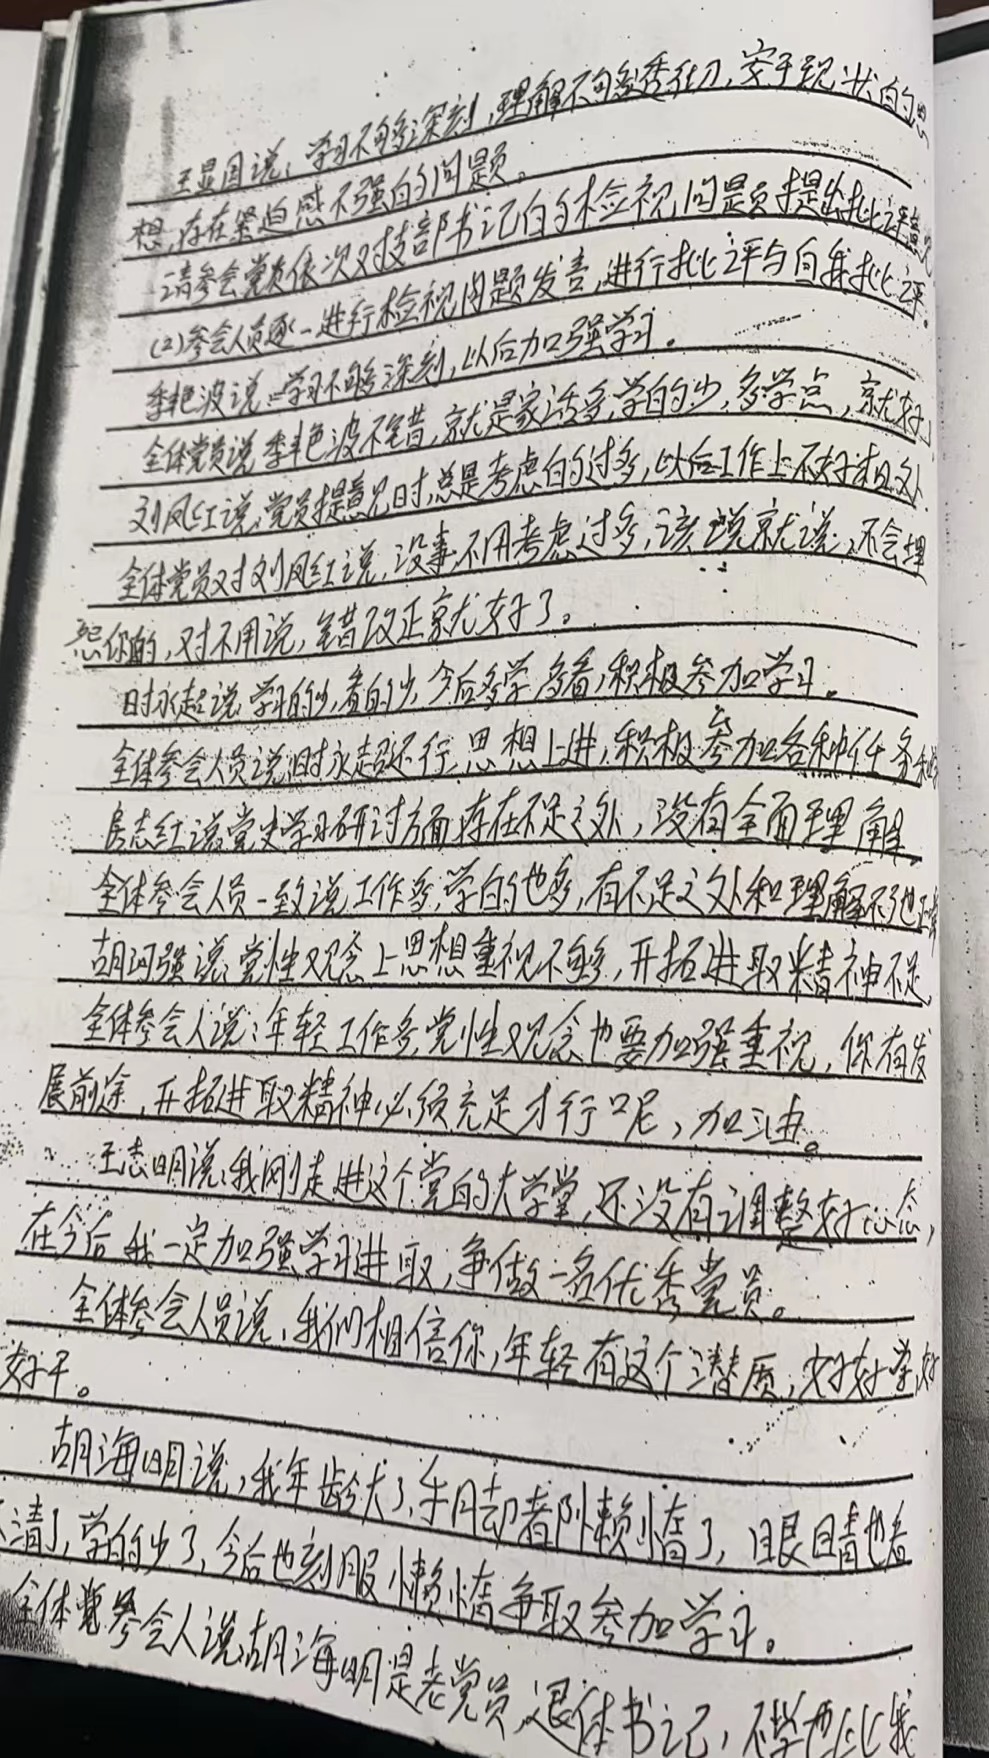 王显国说：学习不够深刻，理解不够透彻，安于现状的思
想，存在紧迫感不强的问题。
请参会党员依次对支部书记的检视问题提出批评意见
(2)参会人员逐一进行检视问题发言，进行批评与自我批评。
季艳波说：学习不够深刻，以后加强学习。
全体党员说季艳波不错，就是家活多，学的少，多学点，就好
刘凤红说，党员提意见时，总是考虑的过多，以后工作上不好相处
全体党员对刘凤红说，没事，不用考虑过多，该说就说，不会埋
怨你的，对不用说，错改正就好了。
时永超说，学的少，看的少，今后多学多看，积极参加学习。
全体参会人员说，时永超还行，思想上进，积极参加各种任务
房志红说，党史学习研讨方面存在不足之处，没有全面理解。
全体参会人员一致说，工作多，学的也多，有不足之处和理解不了也正常
胡河强说，党性观念上思想重视不够，开拓进取精神不足，
全体参会人说：年轻工作多，党性观念也要加强重视，你有发
展前途，开拓进取精神必须充足才行呢，加油。
王志明说，我刚走进这个党的大学堂，还没有调整好心态，
在今后我一定加强学习进取，争做一名优秀党员。
全体参会人员说，我们相信你，年轻有这个潜质，好好学，好
好干。
胡海明说，我年龄大了，手脚都懒惰了，眼睛也看
不清了，学的少了，今后也刻服懒惰争取参加学习。
全体党参会人说，胡海明是老党员，退休书记，不学也比我